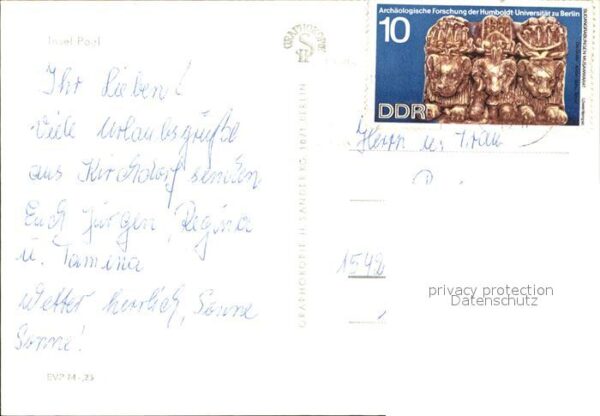 Insel-Poel
Ihr Lieben!
Viele Urlaubsgrüße
aus Kirchdorf senden
Euch Jürgen, Regina
u. Tamina
Wetter herrlich, Sonne
Sonne!
EVP M -,25
GRAPHOKOPIE
GRAPHOKOPIE H. SANDBERG 1071 BERLIN
Archäologische Forschung der Humboldt-Universität zu Berlin
10
DDR
Herrn u. Frau
1542
privacy protection
Datenschutz